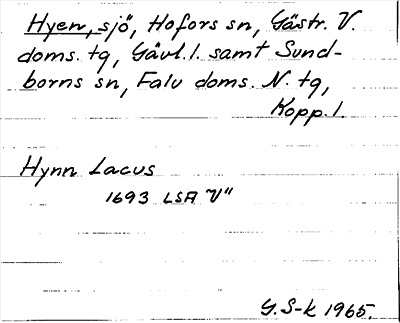 Hyen, sjö, Hofors sn, Gästr. V.
doms. tg, Gävl. l. samt Sund-
borns sn, Falu doms. N. tg,
Kopp. l.
Hynn Lacus
1693 LSA V"
G. S-k 1965.